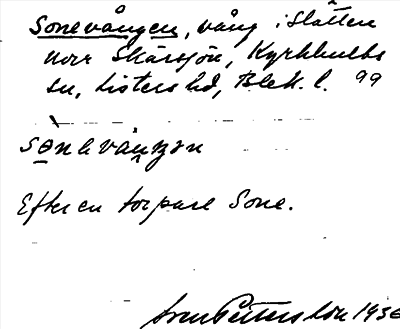 Sonevången, vång i slåtten
norr Skärsjön, Kyrkhults
sn, Listers hd, Blek. l. 99
sònevåŋən
Efter en torpare Sone.
Sven Pettersson 1936